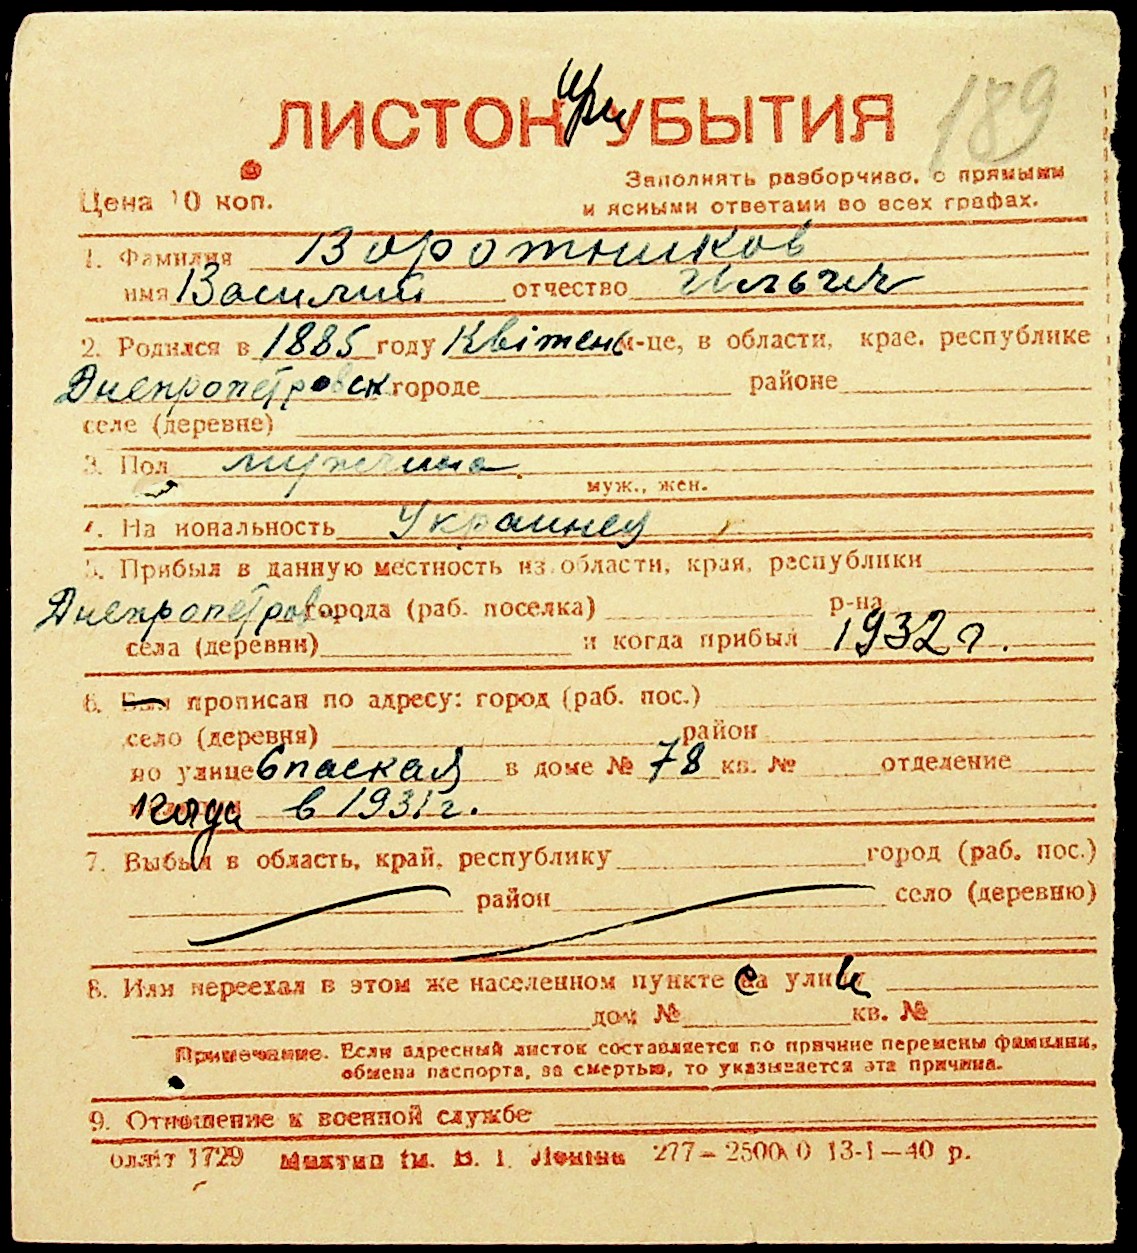 189
ЛИСТОК при УБЫТИЯ
Цена 10 коп.
Заполнять разборчиво, с прямыми
и ясными ответами во всех графах.
1. Фамилия Воротников
имя Василий отчество Ильич
2. Родился в 1885 году Квітень м-це, в области, крае, республике
Днепропетровск городе районе
селе (деревне)
3. Пол мужчина
муж., жен.
4. На иональность Украинец
5. Прибыл в данную местность из области, края, республики
Днепропетров города (раб. поселка) р-на
села (деревни) и когда прибыл 1932 г.
6. Был прописан по адресу: город (раб. пос.)
село (деревня) район
по улице Спаская в доме № 78 кв. № отделение
когда в 1931 г.
7. Выбыл в область, край, республику город (раб. пос.)
район село (деревню)
8. Или переехал в этом же населенном пункте с улицы
дом № кв. №
Примечание. Если адресный листок составляется по причине перемены фамилии,
обмена паспорта, за смертью, то указывается эта причина.
9. Отношение к военной службе
1729 ім. В. І. Леніна 277–250000 13-1–40 р.